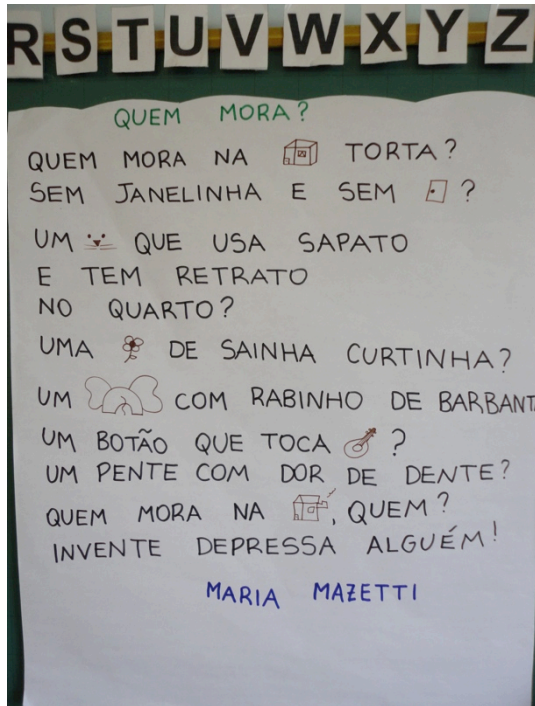 R S T U V W X Y Z
QUEM MORA?
QUEM MORA NA TORTA?
SEM JANELINHA E SEM ?
UM QUE USA SAPATO
E TEM RETRATO
NO QUARTO?
UMA DE SAINHA CURTINHA?
UM COM RABINHO DE BARBANT
UM BOTÃO QUE TOCA ?
UM PENTE COM DOR DE DENTE?
QUEM MORA NA , QUEM?
INVENTE DEPRESSA ALGUÉM!
MARIA MAZETTI